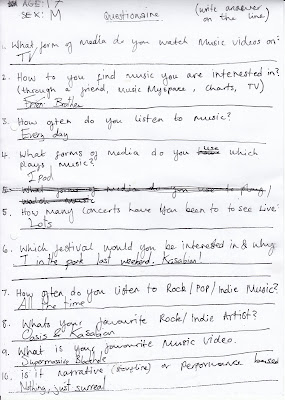 AGE: 17
SEX: M
Questionaire
(write answer
on the line)
1. What form of media do you watch Music videos on?
TV
2. How to you find music you are interested in?
(through a friend, music Myspace, charts, TV)
From Brother
3. How often do you listen to music?
Every day
4. What forms of media do you use which
plays music?
I Pod
5. What forms of media do you use to play/
watch music
5. How many concerts have you been to to see Live?
Lots
6. Which festival would you be interested in & why
T in the park last weekend. Kasabian!
7. How often do you listen to Rock/Pop/Indie Music?
All the time
8. Whats your favourite Rock/Indie Artist?
Oasis & Kasabian
9. What is your favourite Music video.
Supermassive Blackhole
10. is it narrative (storyline) or Performance based
Nothing, just surreal